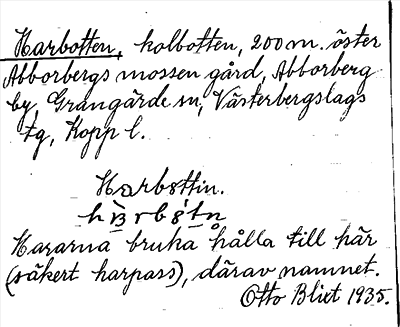 Harbotten, kolbotten, 200 m. öster
Abborbergs mossen gård, Abborberg
by, Grangärde sn, Västerbergslags
tg, Kopp l.
Harbottin.
Hararna bruka hålla till här
(säkert harpass), därav namnet.
Otto Blixt 1935.